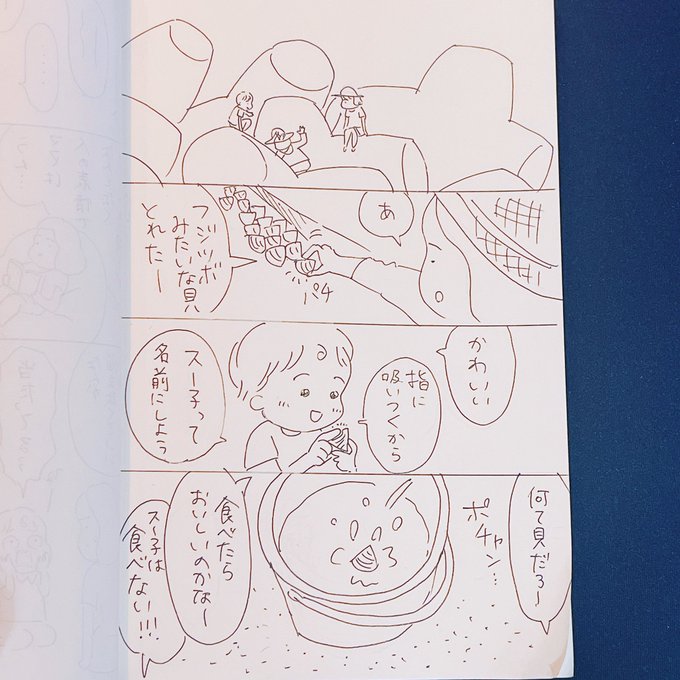 あ
パチ
フジツボ
みたいな貝
とれたー
かわいい
指に
吸いつくから
スー子って
名前にしよう
何て貝だろ〜
ポチャン…
食べたら
おいしいのかな〜
スー子は
食べない!!!